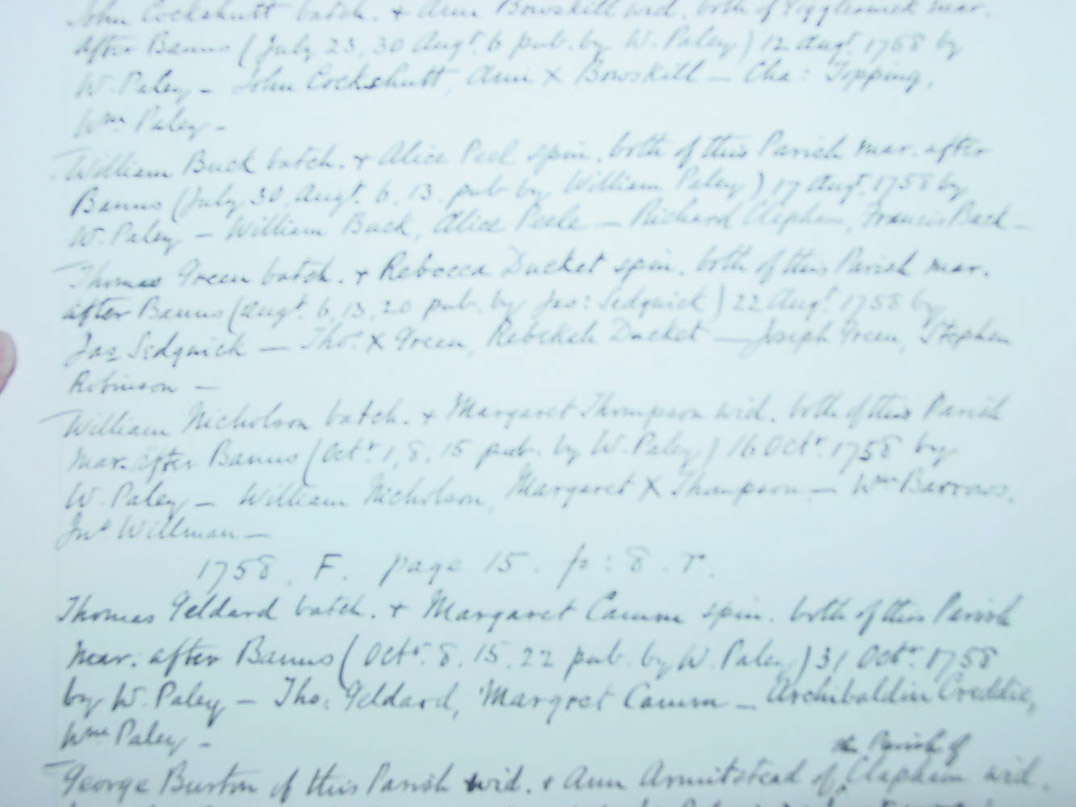 John Cockshutt batch. + Ann Bowskill wid. both of Giggleswick mar.
after Banns (July 23, 30 Augt. 6 pub. by W. Paley) 12 Augt. 1758 by
W. Paley - John Cockshutt, Ann X Bowskill - Cha: Topping,
Wm Paley -
William Buck batch. + Alice Peel spin. both of this Parish mar. after
Banns (July 30. Augt. 6. 13. pub by William Paley) 17 Augt. 1758 by
W. Paley - William Buck, Alice Peele - Richard Clapham, Francis Back -
Thomas Green batch. + Rebecca Ducket spin. both of this Parish mar.
after Banns (Augt. 6, 13, 20 pub. by Jas: Sedgwick) 22 Augt. 1758 by
Jas Sedgwick - Thos. X Green, Rebekah Ducket - Joseph Green, Stephen
Robinson -
William Nicholson batch. + Margaret Thompson wid. both of this Parish
mar. after Banns (Octr. 1, 8, 15 pub. by W. Paley) 16 Octr 1758 by
W. Paley - William Nicholson, Margaret X Thompson - Wm Barrows,
Jno. Willman -
1758. F. page 15. fo: 8. r.
Thomas Geldard batch. + Margaret Camm spin. both of this Parish
mar. after Banns (Octr. 8. 15. 22 pub. by W. Paley) 31 Octr. 1758
by W. Paley - Tho: Geldard, Margret Camm - Archibald Creddie,
Wm Paley -
the Parish of
George Burton of this Parish wid. + Ann Armitstead of Clapham wid.